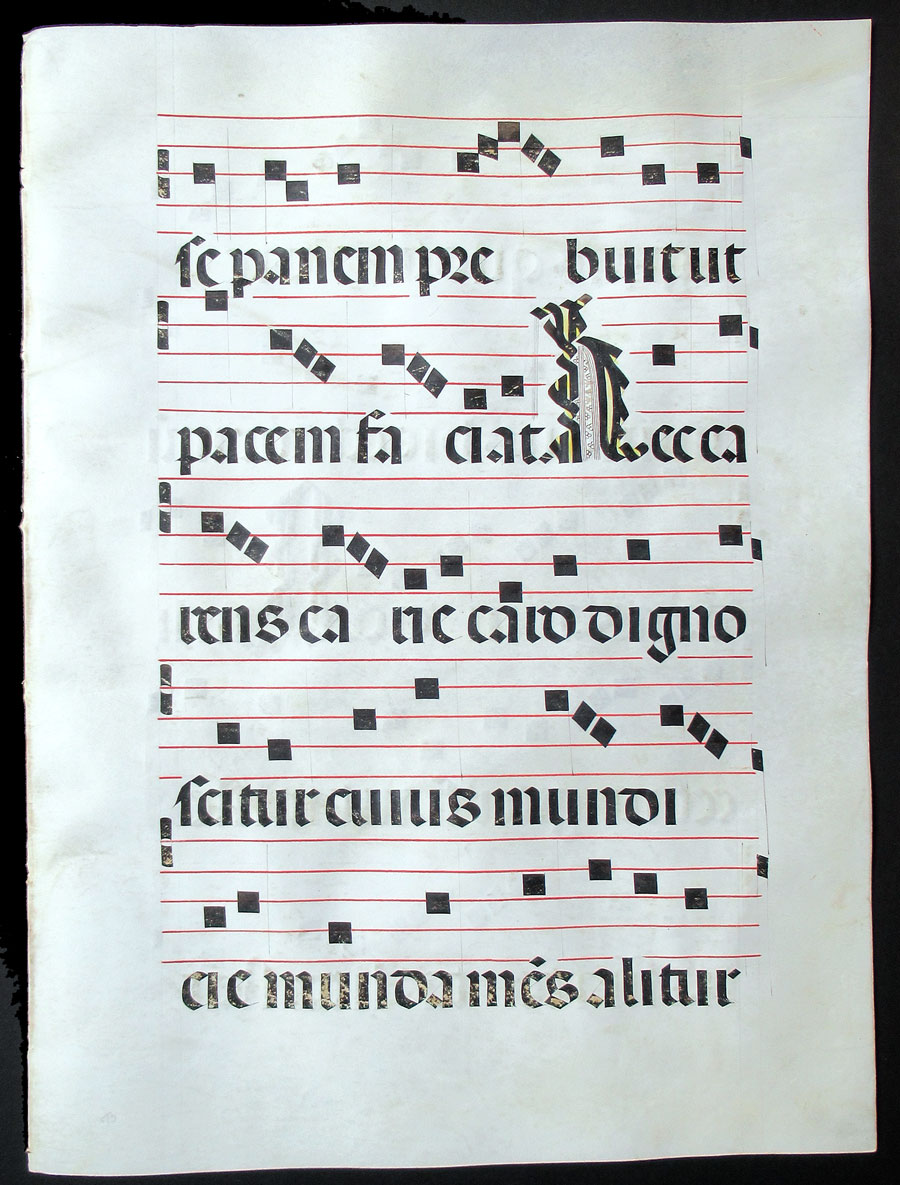 se panem pre buit ut
pacem fa ciat. Nec ca
rens ca rie caro digno
scitur cuius mundi
cie munda mēs alitur